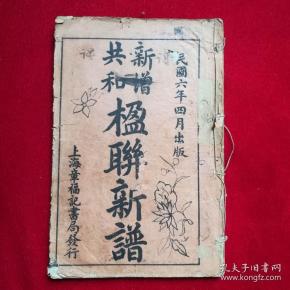 民國六年四月出版
新增
共和
楹聯新譜
上海章福記書局發行
孔夫子旧书网